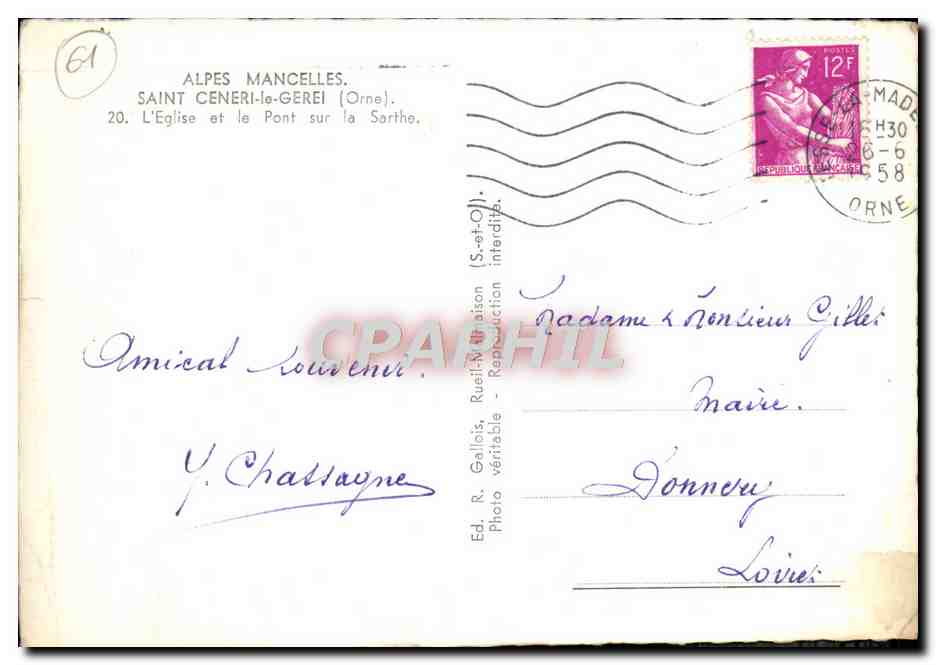 61
ALPES MANCELLES.
SAINT CENERI-le-GEREI (Orne).
20. L'Eglise et le Pont sur la Sarthe.
POSTES
12F
REPUBLIQUE FRANÇAISE
LA-MADE
15H30
26-6
1958
ORNE
Amical souvenir.
Y. Chassagne
Ed. R. Gallois, Rueil-Malmaison (S.-et-O.).
Photo véritable - Reproduction interdite.
CPAPHIL
Madame & Monsieur Gilles
Maire.
Donnery
Loiret